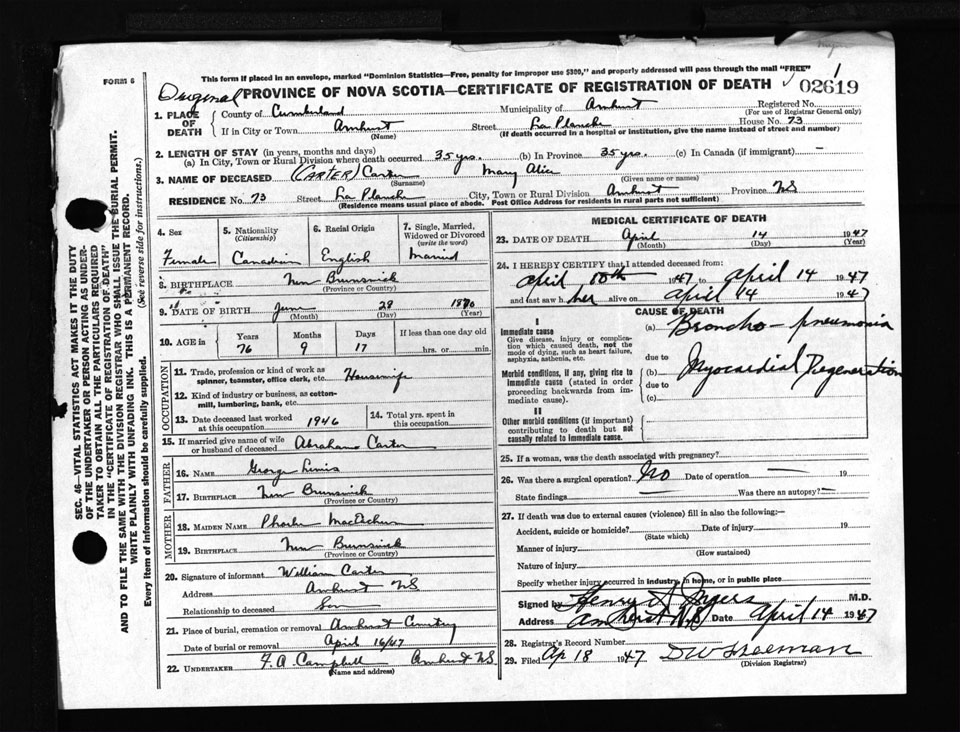 FORM 6
This form if placed in an envelope, marked "Dominion Statistics—Free, penalty for improper use $300," and properly addressed will pass through the mail "FREE"
Original PROVINCE OF NOVA SCOTIA—CERTIFICATE OF REGISTRATION OF DEATH 02619
1. PLACE OF DEATH County of Cumberland Municipality of Amherst Registered No.
(For use of Registrar General only)
If in City or Town Amherst Street La Planche House No. 73
(Name) (If death occurred in a hospital or institution, give the name instead of street and number)
2. LENGTH OF STAY (in years, months and days)
(a) In City, Town or Rural Division where death occurred 35 yrs. (b) In Province 35 yrs. (c) In Canada (if immigrant) —
3. NAME OF DECEASED (CARTER) Carter Mary Alice
(Surname) (Given name or names)
RESIDENCE No. 73 Street La Planche City, Town or Rural Division Amherst Province NS
(Residence means usual place of abode. Post Office Address for residents in rural parts not sufficient)
4. Sex Female
5. Nationality (Citizenship) Canadian
6. Racial Origin English
7. Single, Married, Widowed or Divorced (write the word) Married
8. BIRTHPLACE New Brunswick
(Province or Country)
9. DATE OF BIRTH June 28 1870
(Month) (Day) (Year)
10. AGE in Years Months Days If less than one day old
76 9 17 hrs. or min.
OCCUPATION
11. Trade, profession or kind of work as spinner, teamster, office clerk, etc. Housewife
12. Kind of industry or business, as cotton-mill, lumbering, bank, etc.
13. Date deceased last worked at this occupation 1946
14. Total yrs. spent in this occupation
15. If married give name of wife or husband of deceased Abraham Carter
FATHER
16. NAME George
17. BIRTHPLACE New Brunswick
(Province or Country)
MOTHER
18. MAIDEN NAME Phoebe
19. BIRTHPLACE New Brunswick
(Province or Country)
20. Signature of informant William Carter
Address Amherst NS
Relationship to deceased Son
21. Place of burial, cremation or removal Amherst Cemetery
Date of burial or removal April 16/47
22. UNDERTAKER F. A. Campbell Amherst NS
(Name and address)
MEDICAL CERTIFICATE OF DEATH
23. DATE OF DEATH April 14 1947
(Month) (Day) (Year)
24. I HEREBY CERTIFY that I attended deceased from:
April 1947 to April 14 1947
and last saw her alive on April 14 1947
CAUSE OF DEATH
I
Immediate cause (a) Broncho-pneumonia
Give disease, injury or complication which caused death, not the mode of dying, such as heart failure, asphyxia, asthenia, etc.
due to
Morbid conditions, if any, giving rise to immediate cause (stated in order proceeding backwards from immediate cause).
(b) Myocardial Degeneration
due to
(c)
II
Other morbid conditions (if important) contributing to death but not causally related to immediate cause.
25. If a woman, was the death associated with pregnancy?
26. Was there a surgical operation? No Date of operation — 19
State findings — Was there an autopsy? —
27. If death was due to external causes (violence) fill in also the following:—
Accident, suicide or homicide? Date of injury 19
(State which)
Manner of injury
(How sustained)
Nature of injury
Specify whether injury occurred in industry, in home, or in public place
Signed by Henry A M.D.
Address Amherst N.S Date April 14 1947
28. Registrar's Record Number
29. Filed Ap 18 1947
(Division Registrar)
SEC. 46—VITAL STATISTICS ACT MAKES IT THE DUTY
OF THE UNDERTAKER OR PERSON ACTING AS UNDER-
TAKER TO OBTAIN ALL THE PARTICULARS REQUIRED
IN THE "CERTIFICATE OF REGISTRATION OF DEATH"
AND TO FILE THE SAME WITH THE DIVISION REGISTRAR WHO SHALL ISSUE THE BURIAL PERMIT.
WRITE PLAINLY WITH UNFADING INK. THIS IS A PERMANENT RECORD.
Every item of information should be carefully supplied. (See reverse side for instructions.)